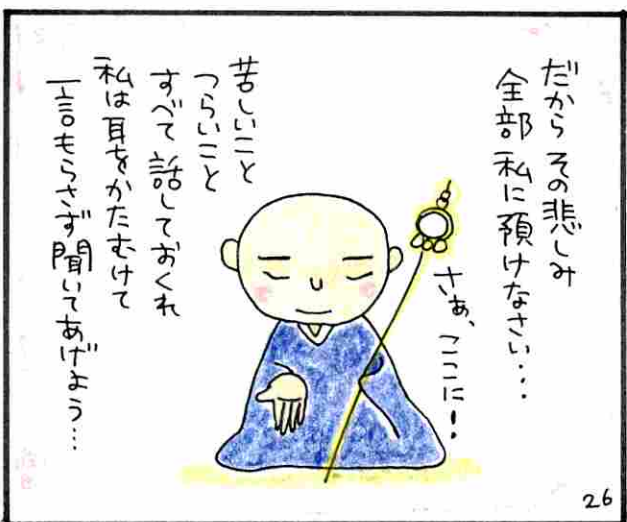 だから その悲しみ
全部 私に預けなさい・・・
さぁ、ここに！
苦しいこと
つらいこと
すべて 話しておくれ
私は耳をかたむけて
一言もらさず聞いてあげよう…
26